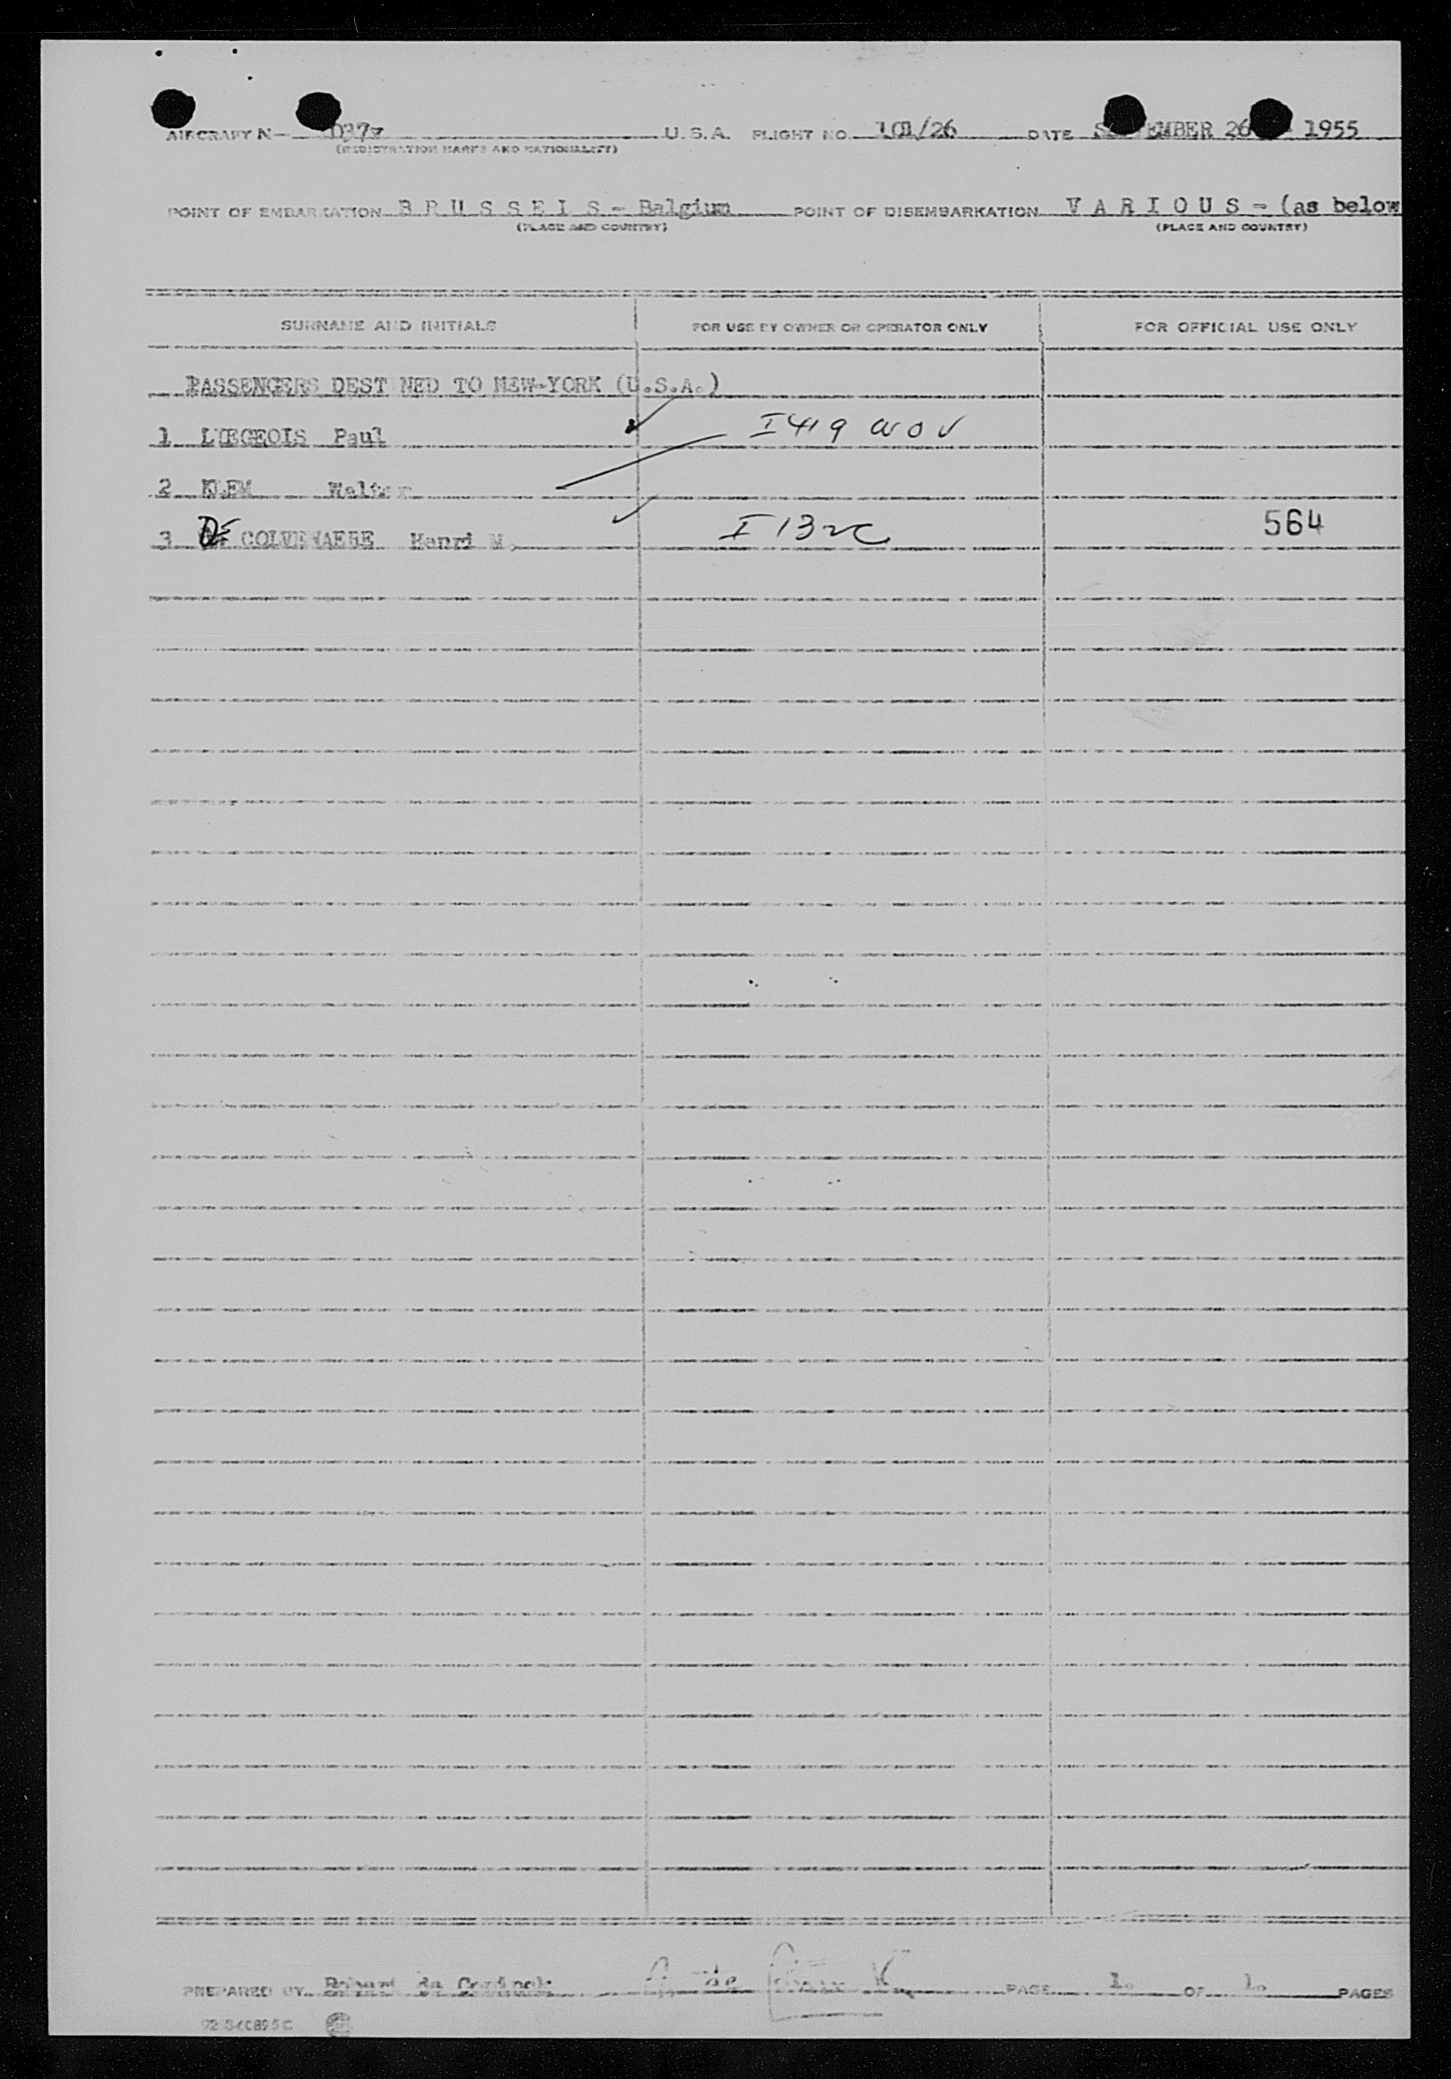 AIRCRAFT N- 037 U.S.A. FLIGHT NO. 101/26 DATE SEPTEMBER 26 1955
(REGISTRATION MARKS AND NATIONALITY)
POINT OF EMBARKATION BRUSSELS - Balgium POINT OF DISEMBARKATION VARIOUS - (as below
(PLACE AND COUNTRY) (PLACE AND COUNTRY)
SURNAME AND INITIALS FOR USE BY OWNER OR OPERATOR ONLY FOR OFFICIAL USE ONLY
PASSENGERS DESTINED TO NEW-YORK (U.S.A.)
1 LIEGEOIS Paul I 419
2 KLEM Walter
3 DE COLVENAERE Henri M. I 132c 564
PREPARED BY Robert de PAGE 1. OF 1. PAGES